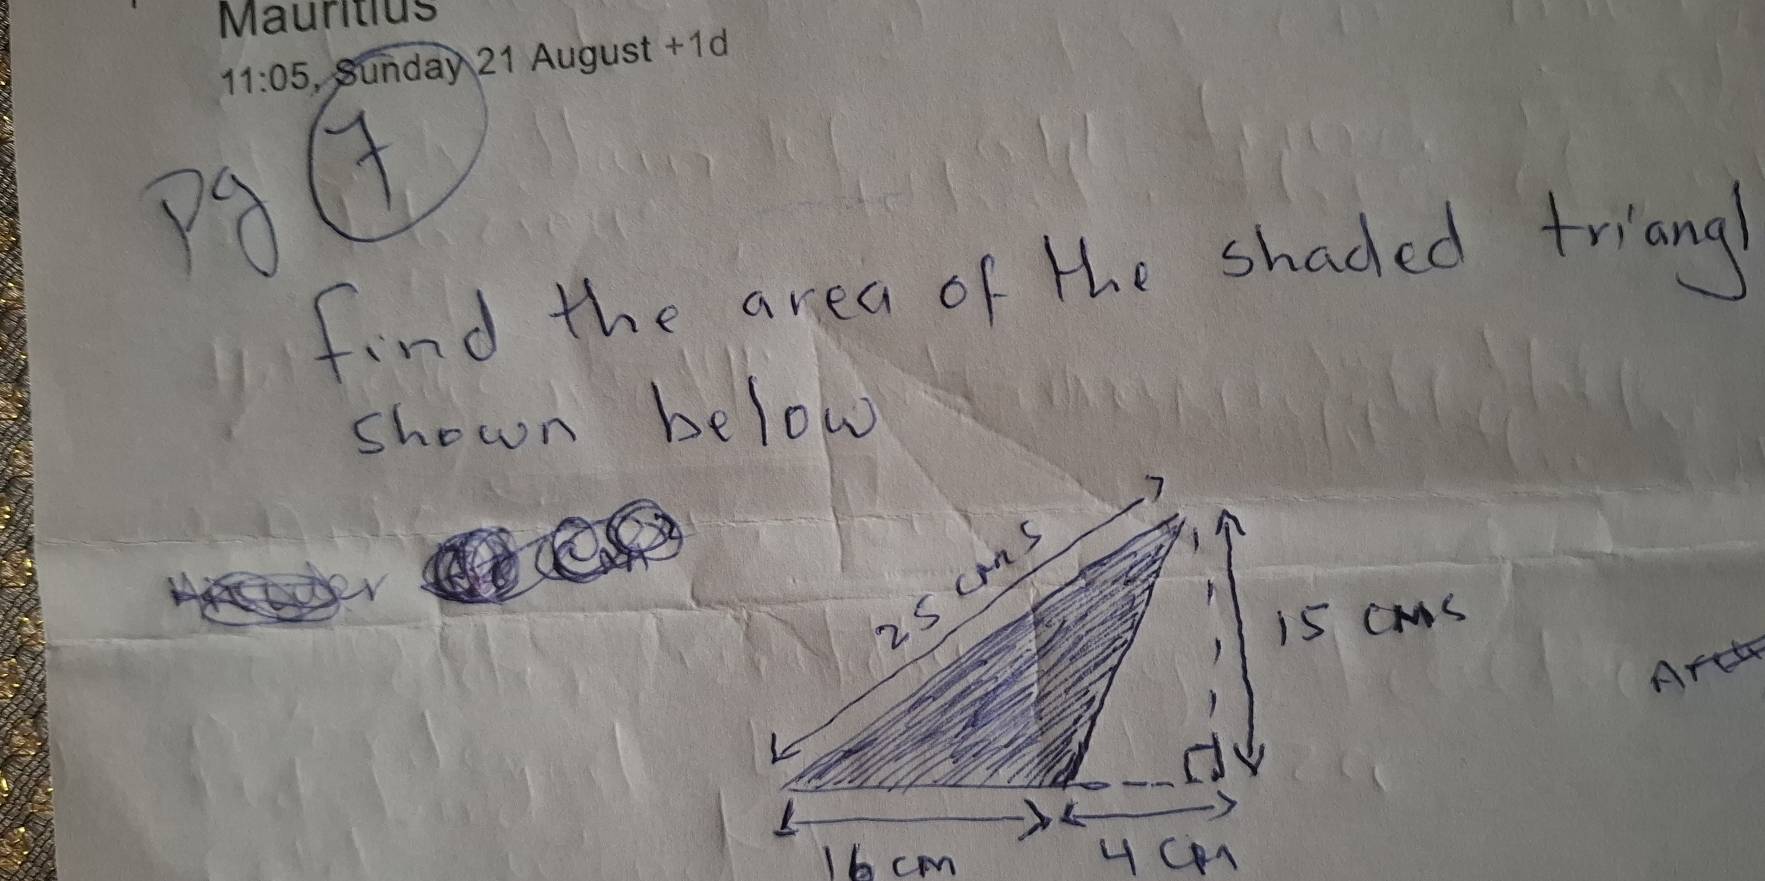 Mauritius
11:05, Sunday 21 August +1d
pg 7
find the area of the shaded triangl
shown below
25 cms
15 cms
16 cm
4 cm